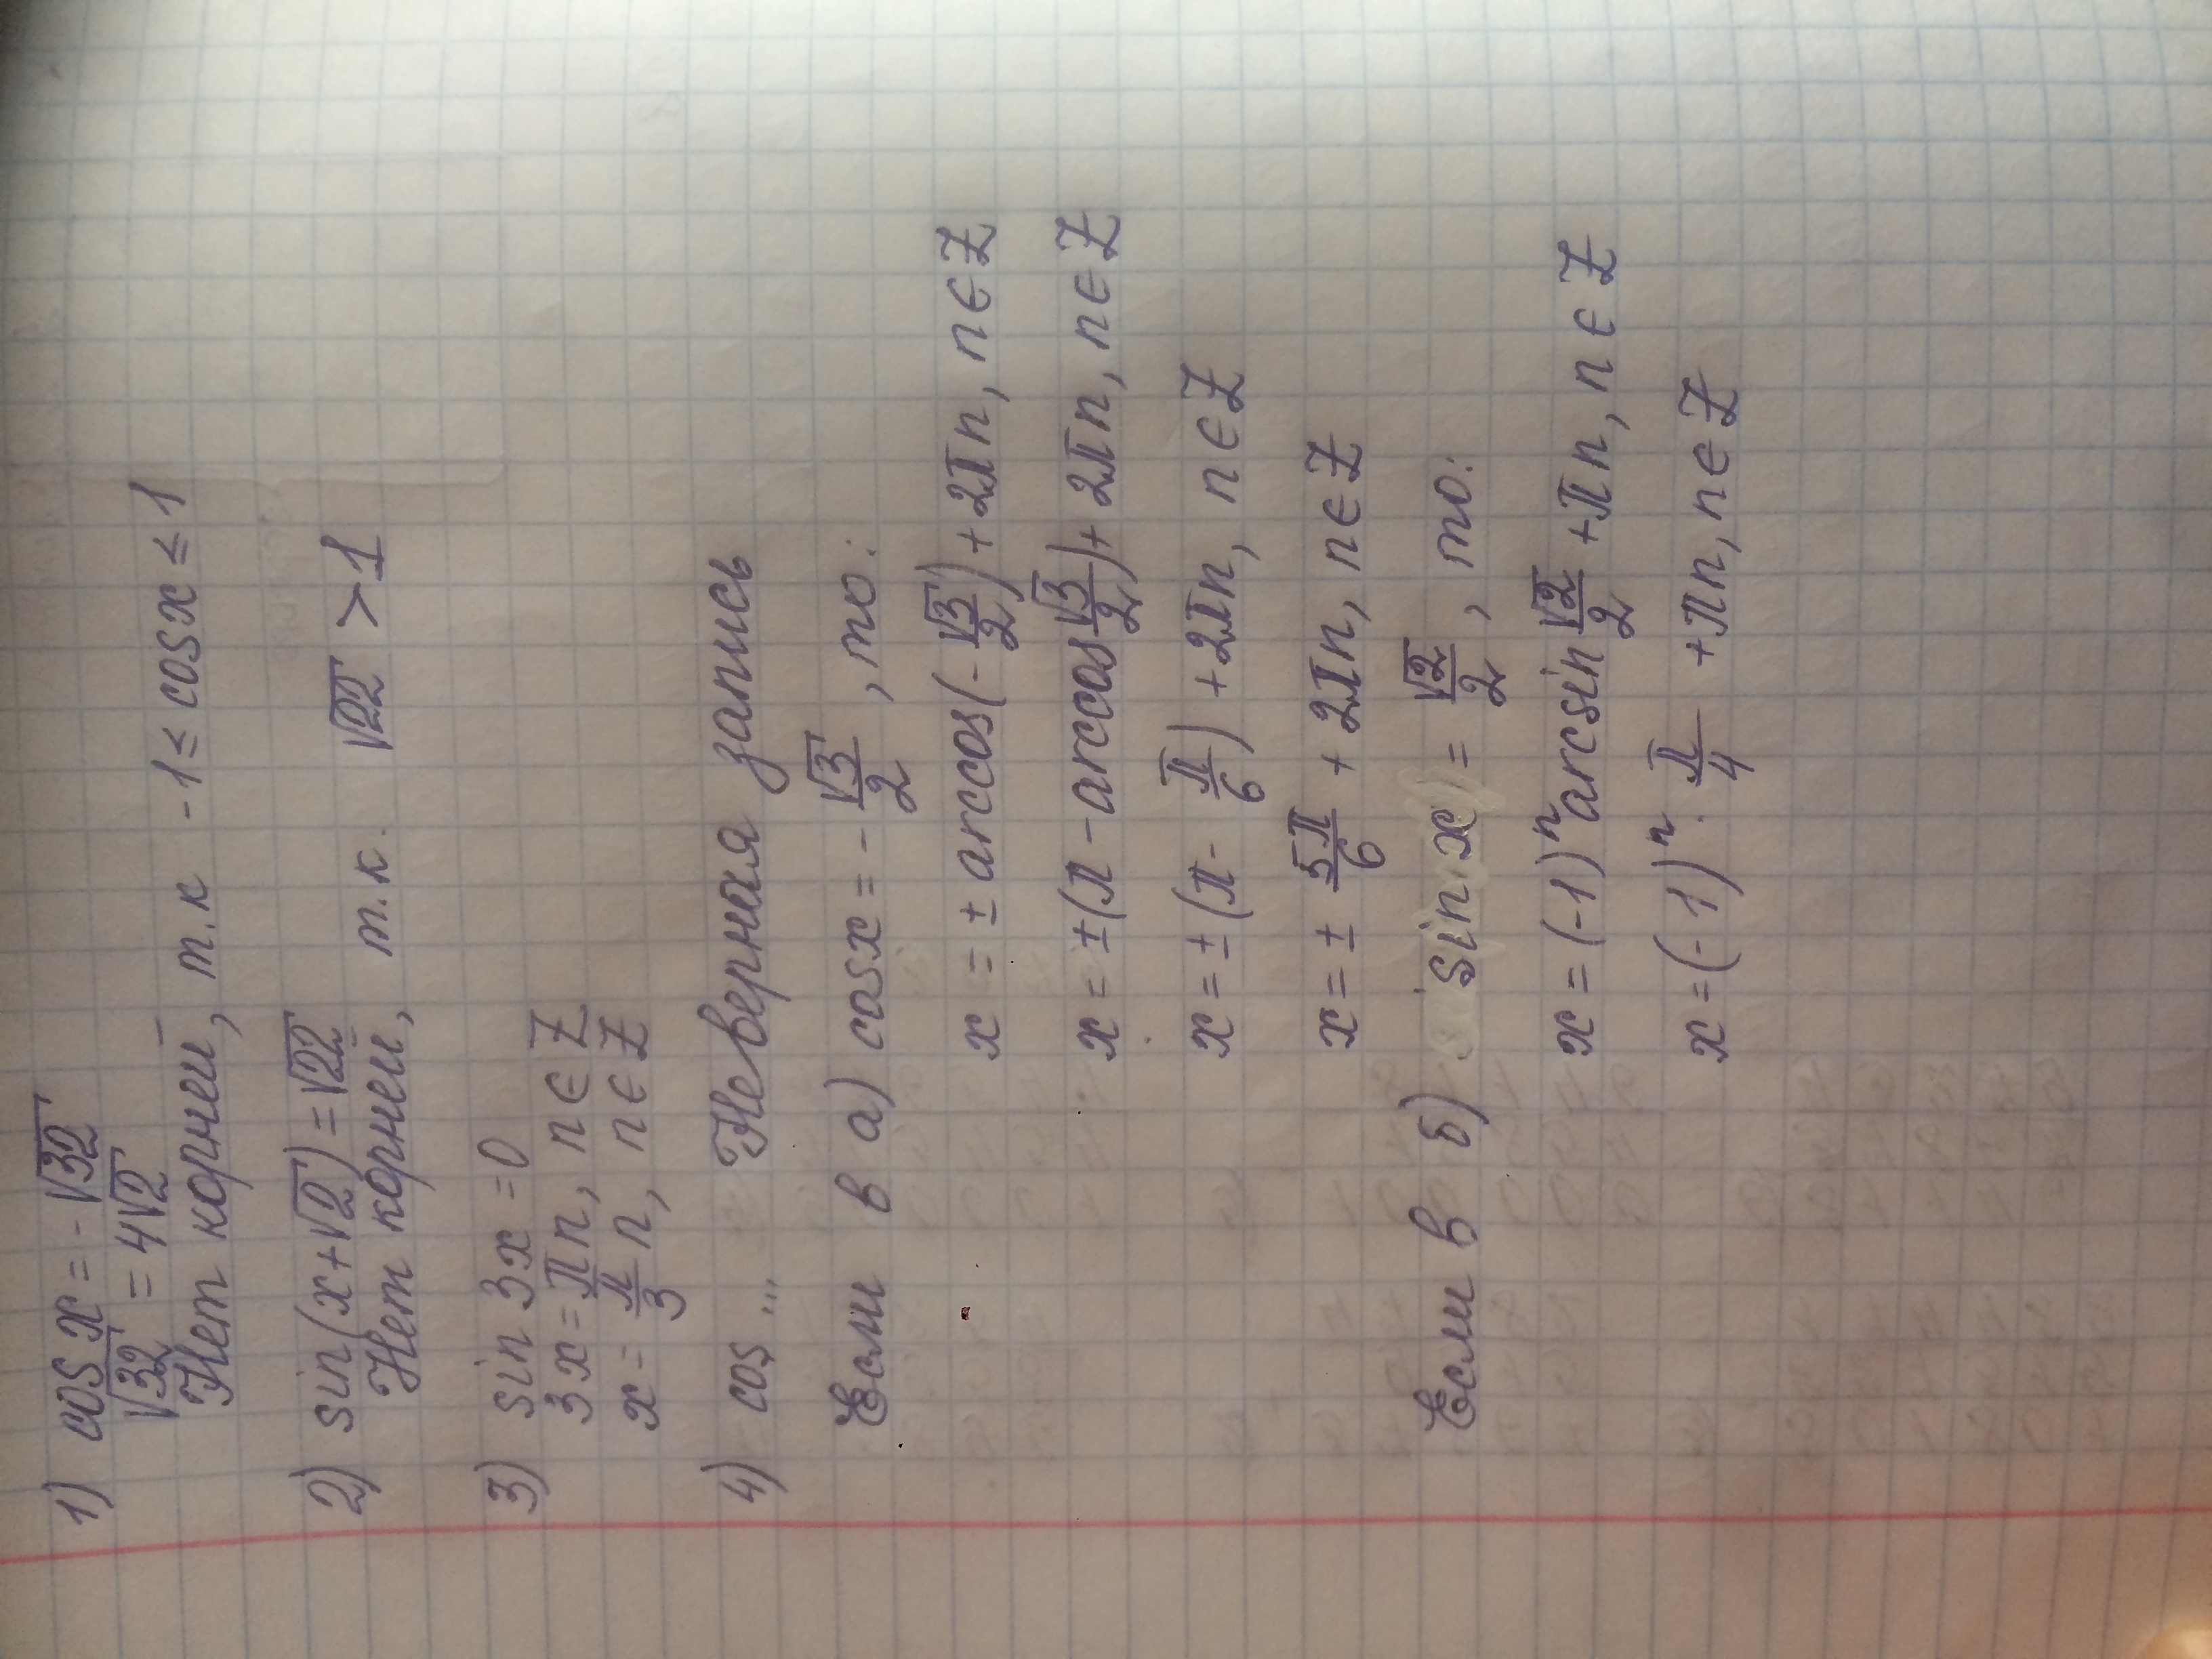 1) cos x = -√32
√32 = 4√2
Нет корней, т.к -1 ≤ cos x ≤ 1
2) sin(x+√2) = √22
Нет корней, т.к. √22 > 1
3) sin 3x = 0
3x = πn, n ∈ Z
x = π/3 n, n ∈ Z
4) cos ... Неверная запись
Если в а) cos x = -√3/2, то:
x = ± arccos(-√3/2) + 2πn, n ∈ Z
x = ±(π - arccos √3/2) + 2πn, n ∈ Z
x = ±(π - π/6) + 2πn, n ∈ Z
x = ± 5π/6 + 2πn, n ∈ Z
Если в б) sin x = √2/2, то:
x = (-1)ⁿ arcsin √2/2 + πn, n ∈ Z
x = (-1)ⁿ · π/4 + πn, n ∈ Z